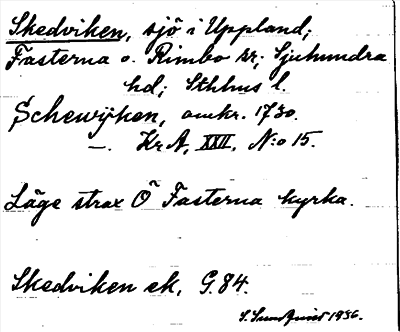 Skedviken, sjö i Uppland;
Fasterna o. Rimbo sr; Sjuhundra
hd; Sthlms l.
Schewijken, omkr. 1730.
—. Kr A, XXII, N:o 15.
Läge strax Ö Fasterna kyrka.
Skedviken ek, G. 84.
S. Sundquist 1936.